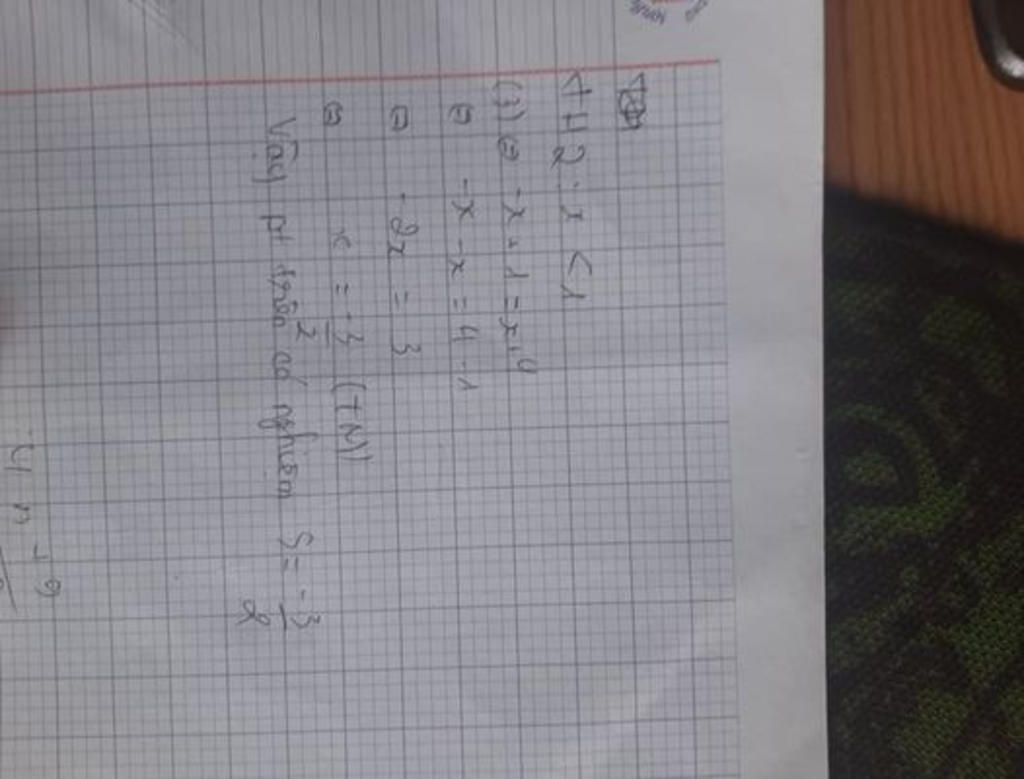 TH2: x < 1
(1) ⇔ -x + 1 = x + 4
⇔ -x - x = 4 - 1
⇔ -2x = 3
⇔ x = -3/2 (TM)
Vậy pt trên có nghiệm S = -3/2